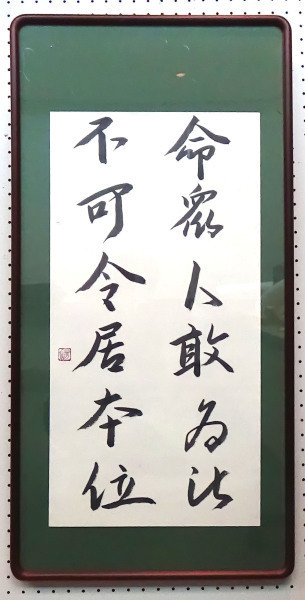 命衆人敢為此
不可令居本位